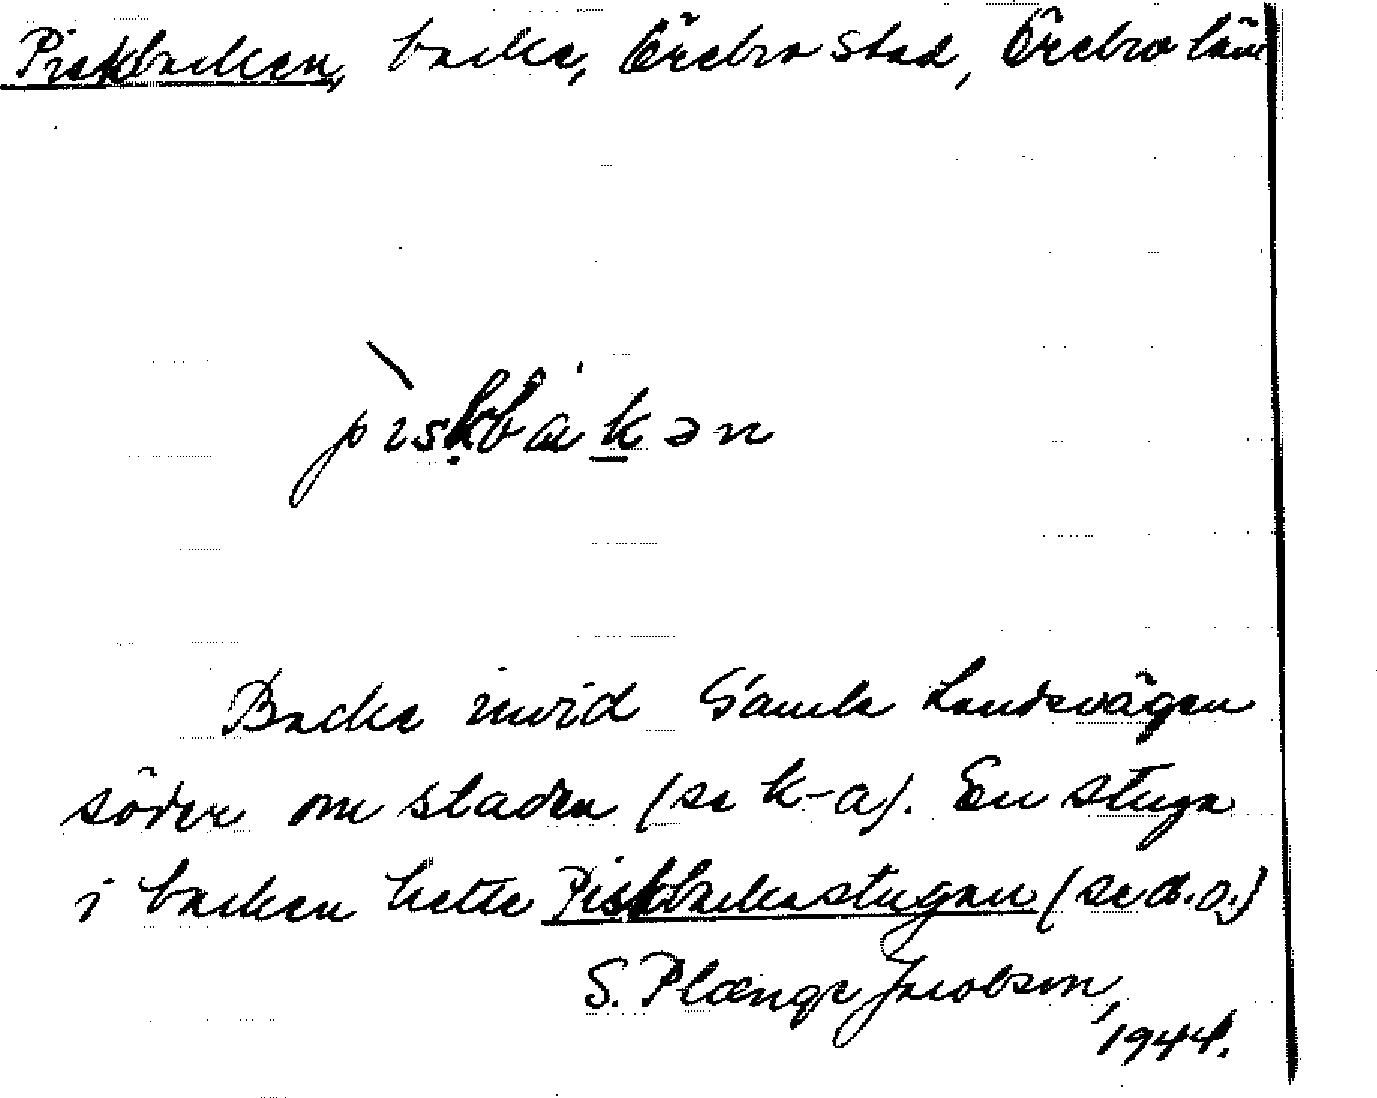 Piskbacken, backe, Örebro stad, Örebro län
pıskbakən
Backe invid Gamla Landsvägen
söder om staden (se k-a). En stuga
i backen hette Piskbackastugan (se d.o.)
S. Plænge Jacobson,
1944.